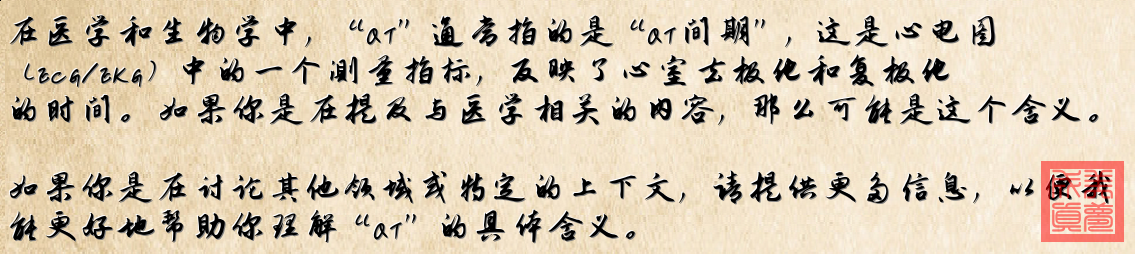 在医学和生物学中，“QT”通常指的是“QT间期”，这是心电图
（ECG/EKG）中的一个测量指标，反映了心室去极化和复极化
的时间。如果你是在提及与医学相关的内容，那么可能是这个含义。
如果你是在讨论其他领域或特定的上下文，请提供更多信息，以便我
能更好地帮助你理解“QT”的具体含义。